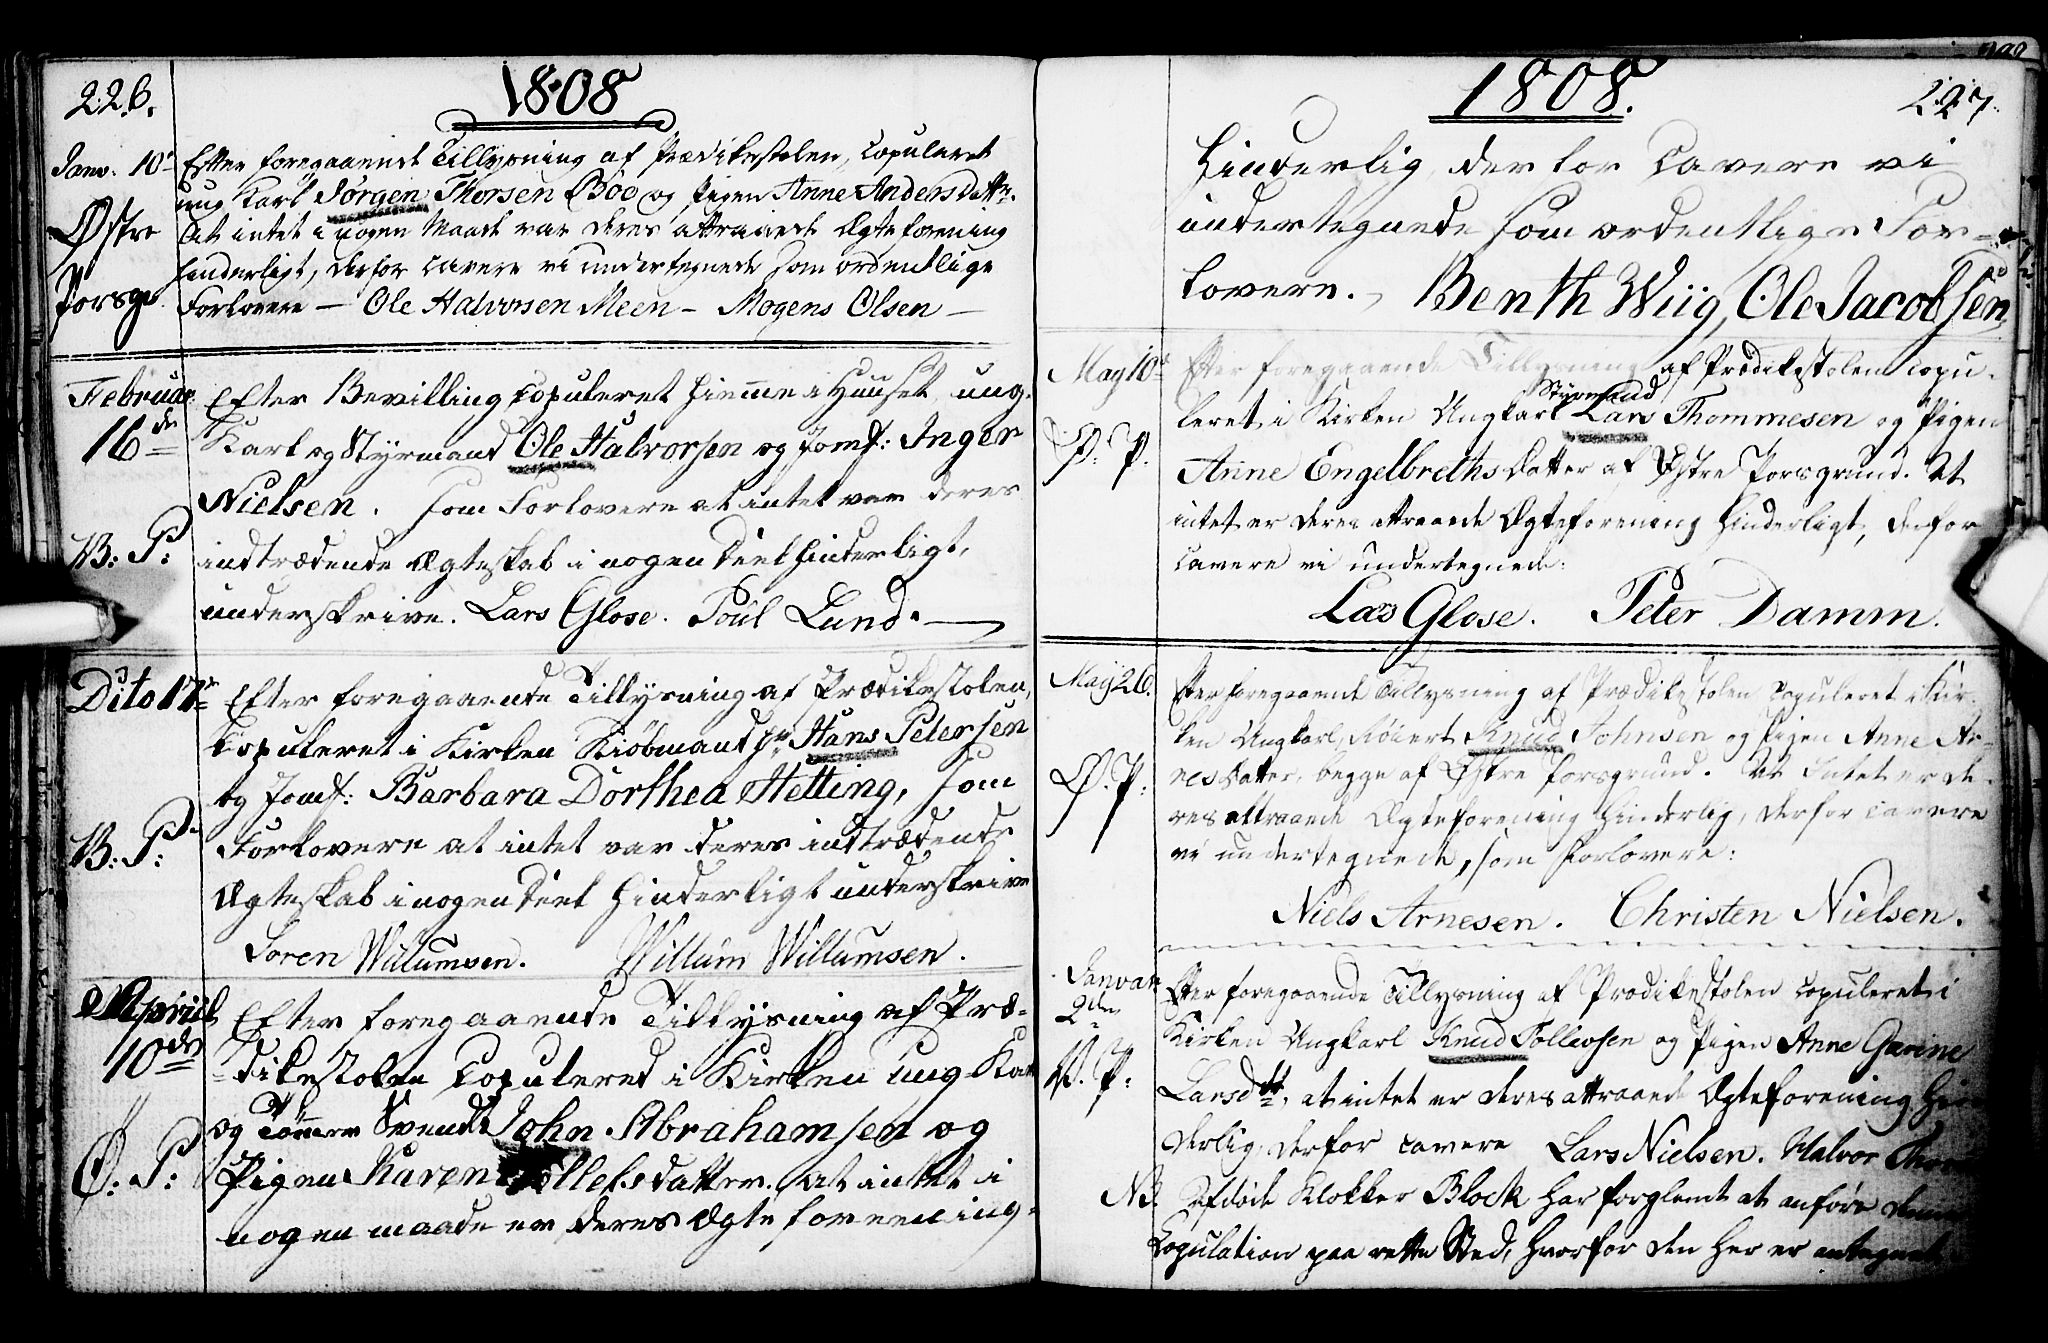 226.
1808
Janv. 10de
Østre
Porsgr.
Efter foregaaende Tillysning af Prædikestolen, Copuleret
ung Karl Jørgen Thorsen Böe og Pigen Anne Andersdattr.
At intet i nogen Maade var deres attraaede Ægteforening
hinderligt, derfor cavere vi undertegnede som ordentlige
Forlovere — Ole Halvorsen Meen — Mogens Olsen —
Februar
16de
V: P:
Efter Bevilling Copuleret hiemme i Huuset ung-
Karl og Styrmand Ole Halvorsen og Jomf: Inger
Nielsen. som Forlovere at intet var deres
indtrædende Ægteskab i nogen Deel hinderligt,
underskrive. Lars Glose. Poul Lund. —
Dito 17de
V: P:
Efter foregaaende Tillysning af Prædikestolen,
Copuleret i Kirken Kiöbmand Hr Hans Petersen
og Jomf: Barbara Dorthea Hetting, som
Forlovere at intet var deres indtrædende
Ægteskab i nogen Deel hinderligt underskrive
Soren Willumsen. Willum Willumsen.
Apriil
10de
Ø: P:
Efter foregaaende Tillysning af Præ-
dikestolen Copuleret i Kirken Ung-Karl
og Tömmer Svend John Abrahamsen og
Pigen Karen datter. At intet i
nogen maade er deres Ægteforeening
1808.
227.
hinderlig, derfor Cavere vi
undertegnede som ordentlige For-
lovere. Benth Wiig, Ole Jacobsen
May 10de
Ø: P.
Efter foregaaende Tillysning af Prædikestolen copu-
Styrmand
leret i Kirken Ungkarl Lars Thommesen og Pigen
Anne Engelbrethsdatter af Østre Porsgrund. At
intet er deres attraaede Ægteforening hinderligt, derfor
cavere vi undertegnede:
Lars Glose. Peter Damm.
May 26.
Ø. P:
Efter foregaaende Tillysning af Prædikestolen Copuleret i Kir-
ken Ungkarl, Knud Johnsen og Pigen Anne Ar-
nesdatter, begge af Østre Porsgrund. At Intet er de-
res attraaede Ægteforening hinderlig, derfor cavere
vi undertegnede, som Forlovere:
Niels Arnesen. Christen Nielsen.
Januar
2den
V. P:
Efter foregaaende Tillysning af Prædikestolen copuleret i
Kirken Ungkarl Knud Tollevsen og Pigen Anne Gurine
Larsdtr, at intet er deres attraaede Ægteforening hin-
derlig, derfor cavere Lars Nielsen. Halvor
NB. Afdøde Klokker Block har forglemt at anføre denne
Copulation paa rette Sted, hvorfor den her er antegnet